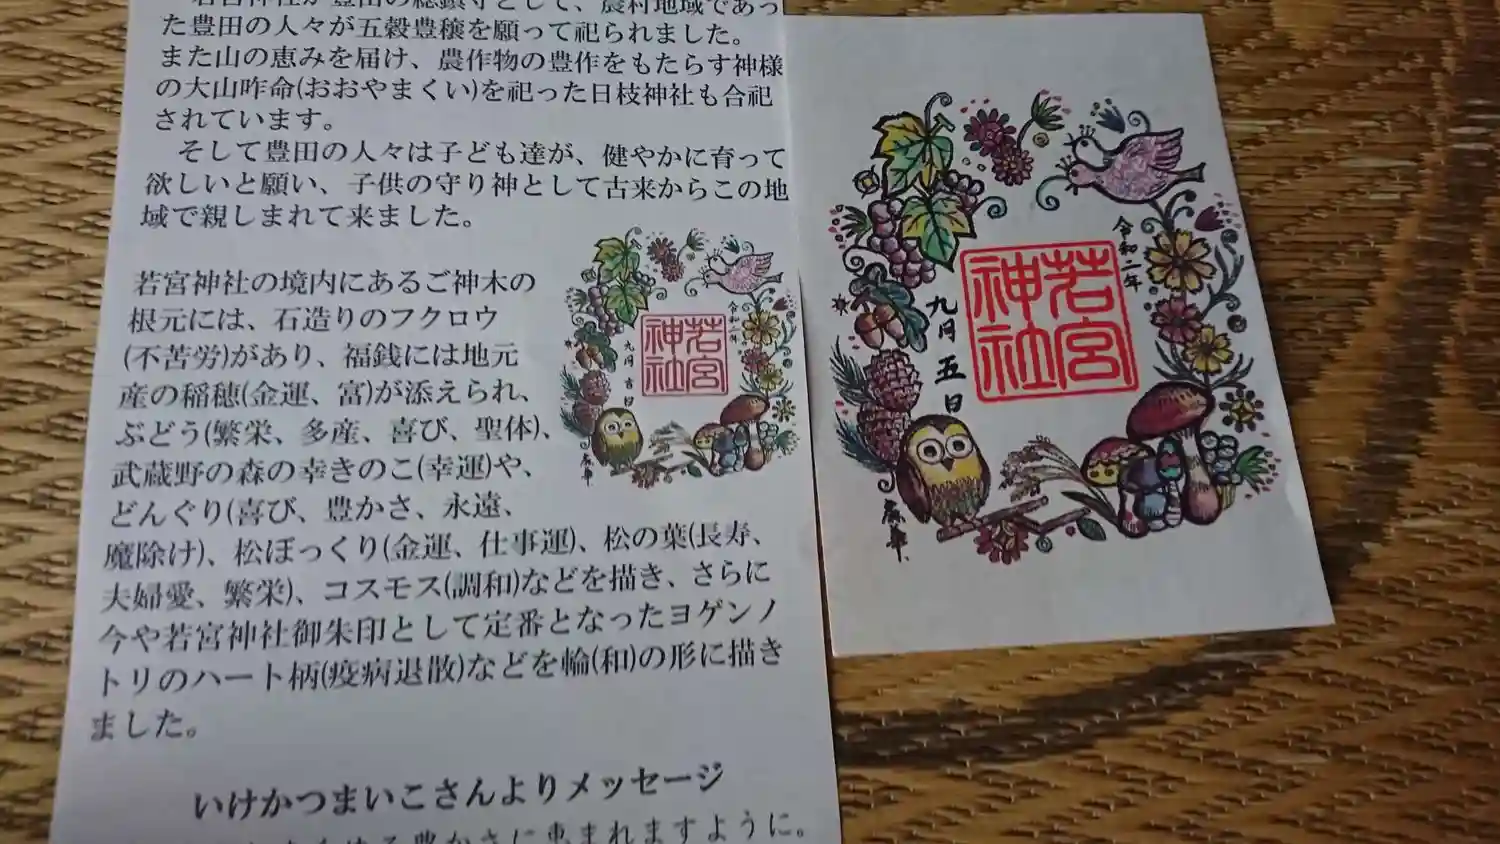 若宮神社が豊田の総鎮守として、農村地域であっ
た豊田の人々が五穀豊穣を願って祀られました。
また山の恵みを届け、農作物の豊作をもたらす神様
の大山咋命(おおやまくい)を祀った日枝神社も合祀
されています。
そして豊田の人々は子ども達が、健やかに育って
欲しいと願い、子供の守り神として古来からこの地
域で親しまれて来ました。
若宮神社の境内にあるご神木の
根元には、石造りのフクロウ
(不苦労)があり、福銭には地元
産の稲穂(金運、富)が添えられ、
ぶどう(繁栄、多産、喜び、聖体)、
武蔵野の森の幸きのこ(幸運)や、
どんぐり(喜び、豊かさ、永遠、
魔除け)、松ぼっくり(金運、仕事運)、松の葉(長寿、
夫婦愛、繁栄)、コスモス(調和)などを描き、さらに
今や若宮神社御朱印として定番となったヨゲンノ
トリのハート柄(疫病退散)などを輪(和)の形に描き
ました。
いけかつまいこさんよりメッセージ
豊かさに恵まれますように。
令和二年
若宮
神社
九月吉日
令和二年
若宮
神社
九月五日